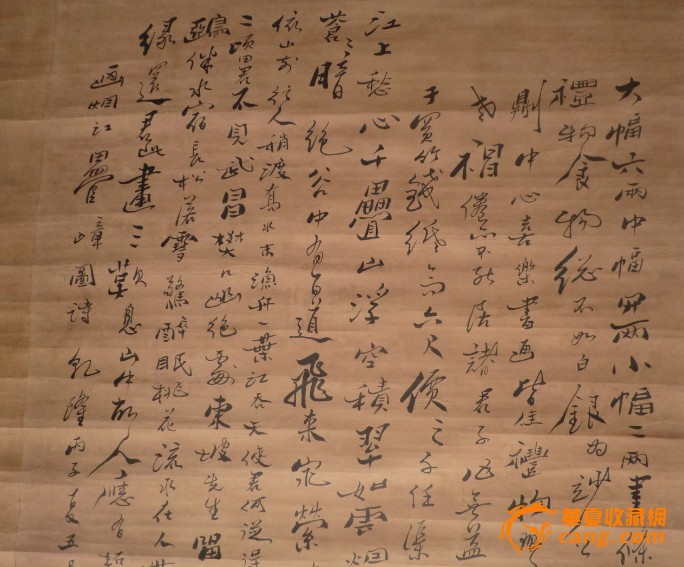 大幅六兩中幅四兩小幅二兩書條
禮物食物総不如白銀為妙公
則中心喜樂書画皆佳禮物既
老神倦亦不能陪諸君子作無益
于買竹錢紙高六尺價三千任渠
江上愁心千疊山浮空積翠如雲烟
蒼蒼暗絕谷中有百道飛来泉縈
依山前行人稍渡喬木末漁舟一葉江吞天使君何從得
二頃田不見武昌樊口幽絕處東坡先生留
鴉伴水宿長松落雪驚醉眠桃花流水在人世
緣還君此畫三歎息山中故人應有招
画烟江疊嶂圖詩 乾隆丙子夏五月
華夏收藏網
cang.com